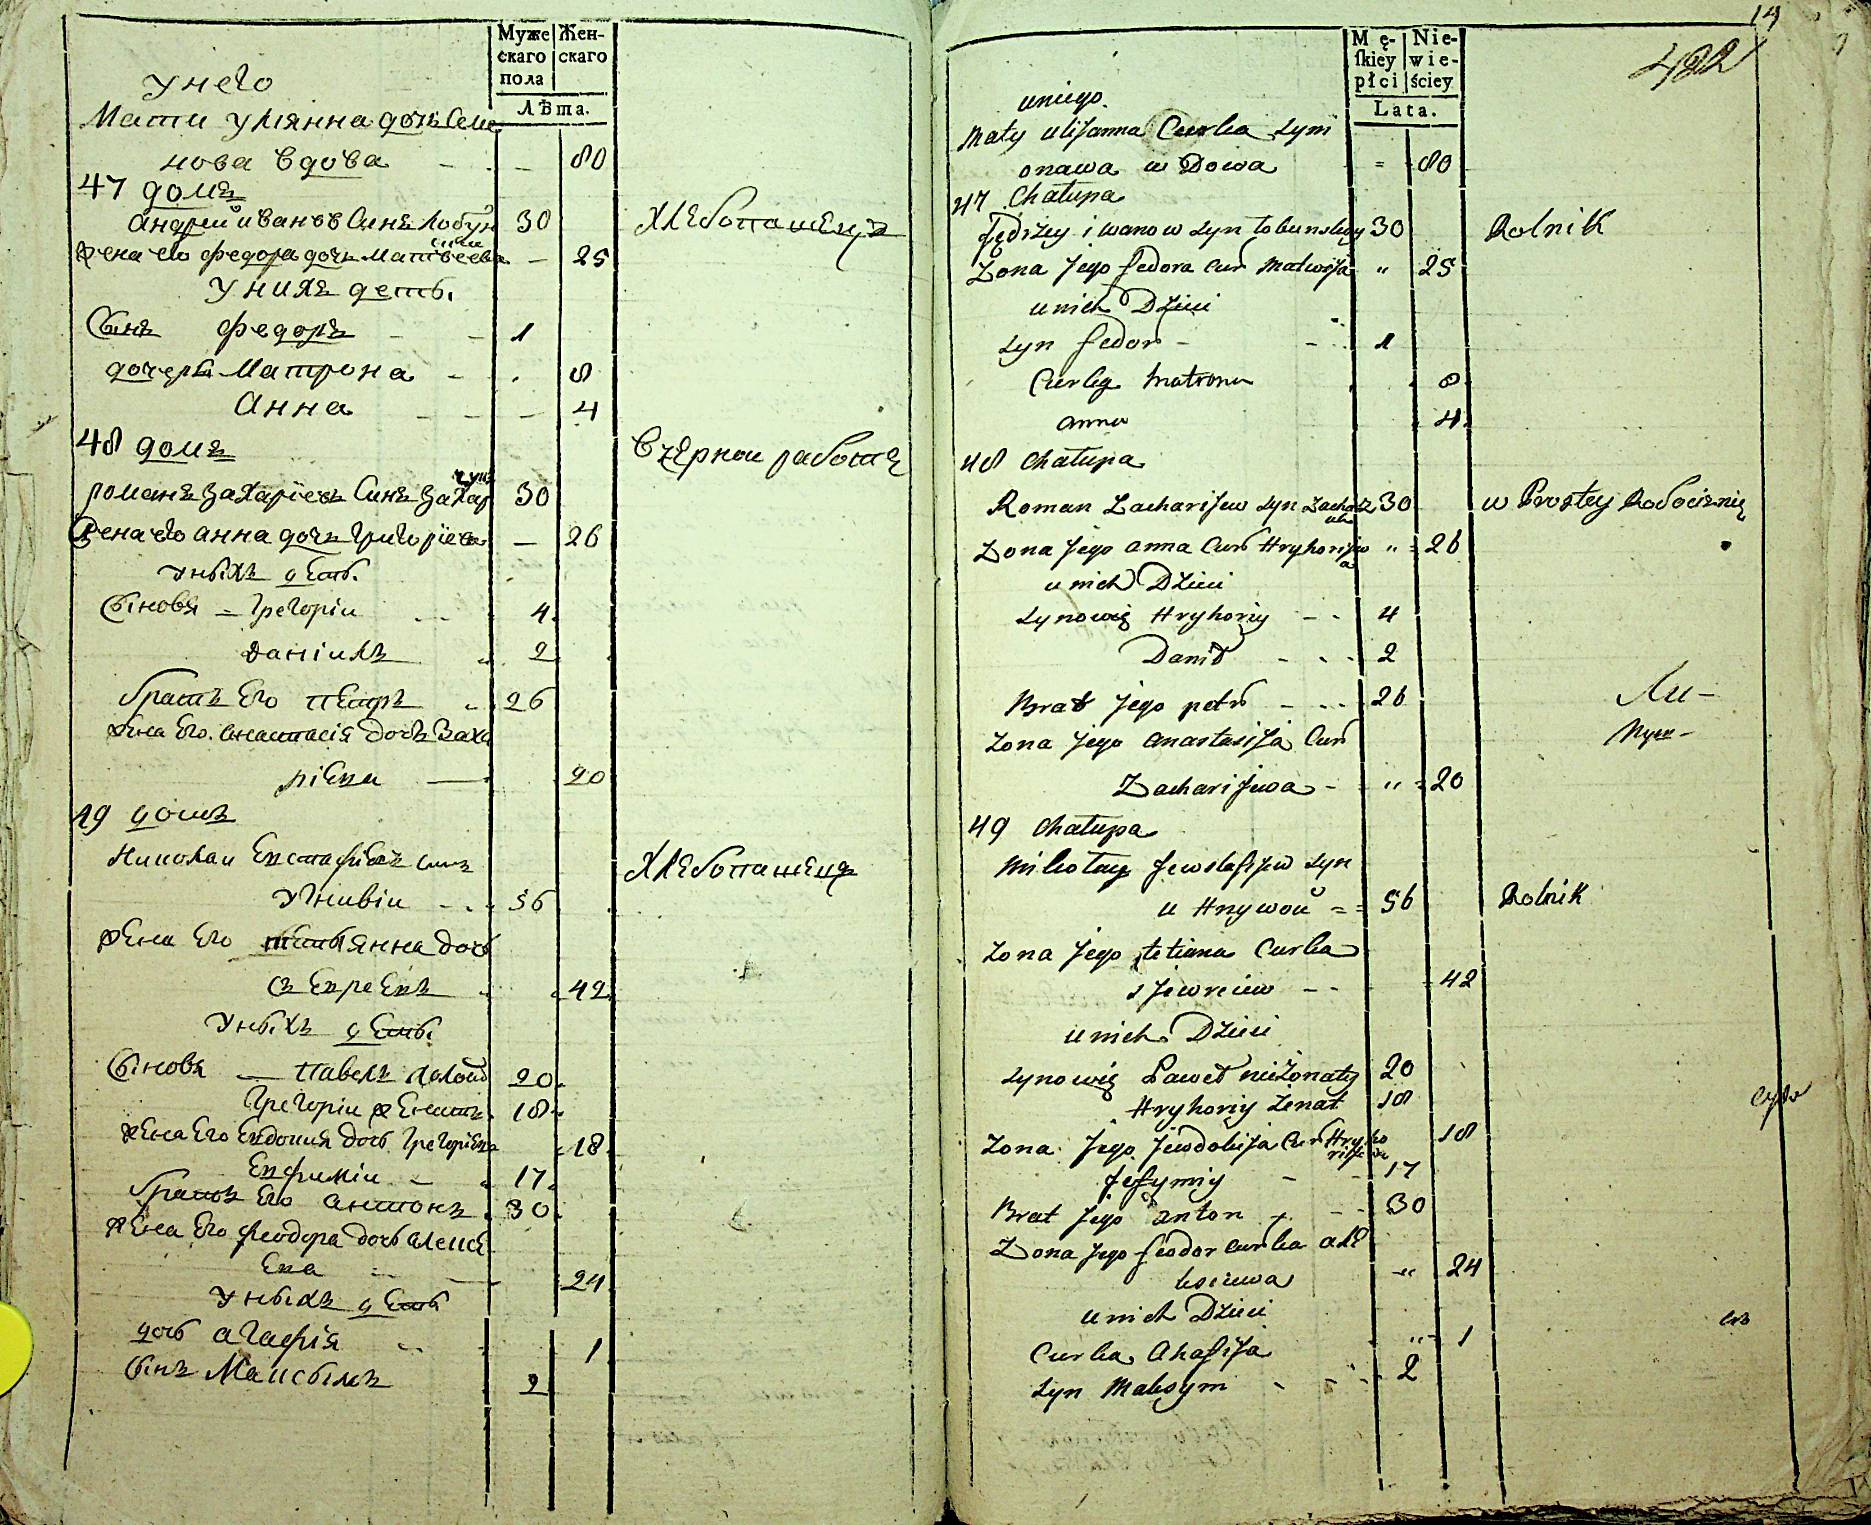 Муже Жен-
скаго скаго
пола
Лѣта.
унего
Мати улянна дочь Семе
нова вдова — — 80
47 домъ
андрей ивановъ Синъ Лобун 30 Хлебопашецъ
ский
жена его федора дочь матвеева — 25
унихъ дети.
Сынъ федоръ - - 1
дочери Матрона - . 8
Анна — — — 4
48 домъ В черной работе
чук
романъ захаріевъ Синъ Захар 30
жена его анна дочь григоріева — 26
уныхъ дети.
Сыновя — Грегоріи 4
Даніилъ 2
братъ Его петръ 26
жена Его. анастасія дочь Заха
ріева — 20
49 домъ
Николаи Евстафіевъ синъ Хлебопашецъ
угнивіи - . . 56
жена Его тетіянна дочь
Евреевъ 42
уныхъ дети.
Сыновя — павелъ холост 20
Грегоріи женатъ 18
жена Его Евдокия дочь Грегоріева 18
Ефиміи — 17
братъ Его антонъ 30
жена Его феодора дочь алексе
ева 24
уныхъ дети
дочь агафія 1
Сынъ Максымъ 2
14
Mę- Nie-
ſkiey wie-
płci ściey
Lata.
482
uniego.
Maty Ulijanna Curka Sym
onawa w Dowa = 80
47 Chałupa
Jędrzey iwanow syn łobunskiy 30 Rolnik
Zona Jego fedora Cur Matwija " 25
unich Dzieci
syn fedor - 1
Curky Matrona 8
anna 4
48 Chałupa
Roman Zacharijew syn Zachar 30 w Prostey Robociznie
czuk
Zona Jego anna Cur Hryhorijew " 26
a
unich Dzieci
synowie Hryhoriy - - 4
Danił - - 2
Brat Jego petr - - 26
Ли-
Zona Jego anastasija Cur
Zacharijewa - " = 20
49 Chałupa
Mikołay Jewstafijew syn
u Hnywoy = = 56 Rolnik
Zona Jego tetiana Curka
Jewreiew - - 42
unich Dzieci
synowie Paweł nieżonaty 20
Hryhoriy Żenat 18
Zona Jego Jewdokija Cur Hryho 18
Jefymiy - 17
Brat Jego anton - - 30
Zona Jego feodor curka ale
ksiewa " 24
unich Dzieci
Curka Ahafija " 1
syn Maksym - - 2